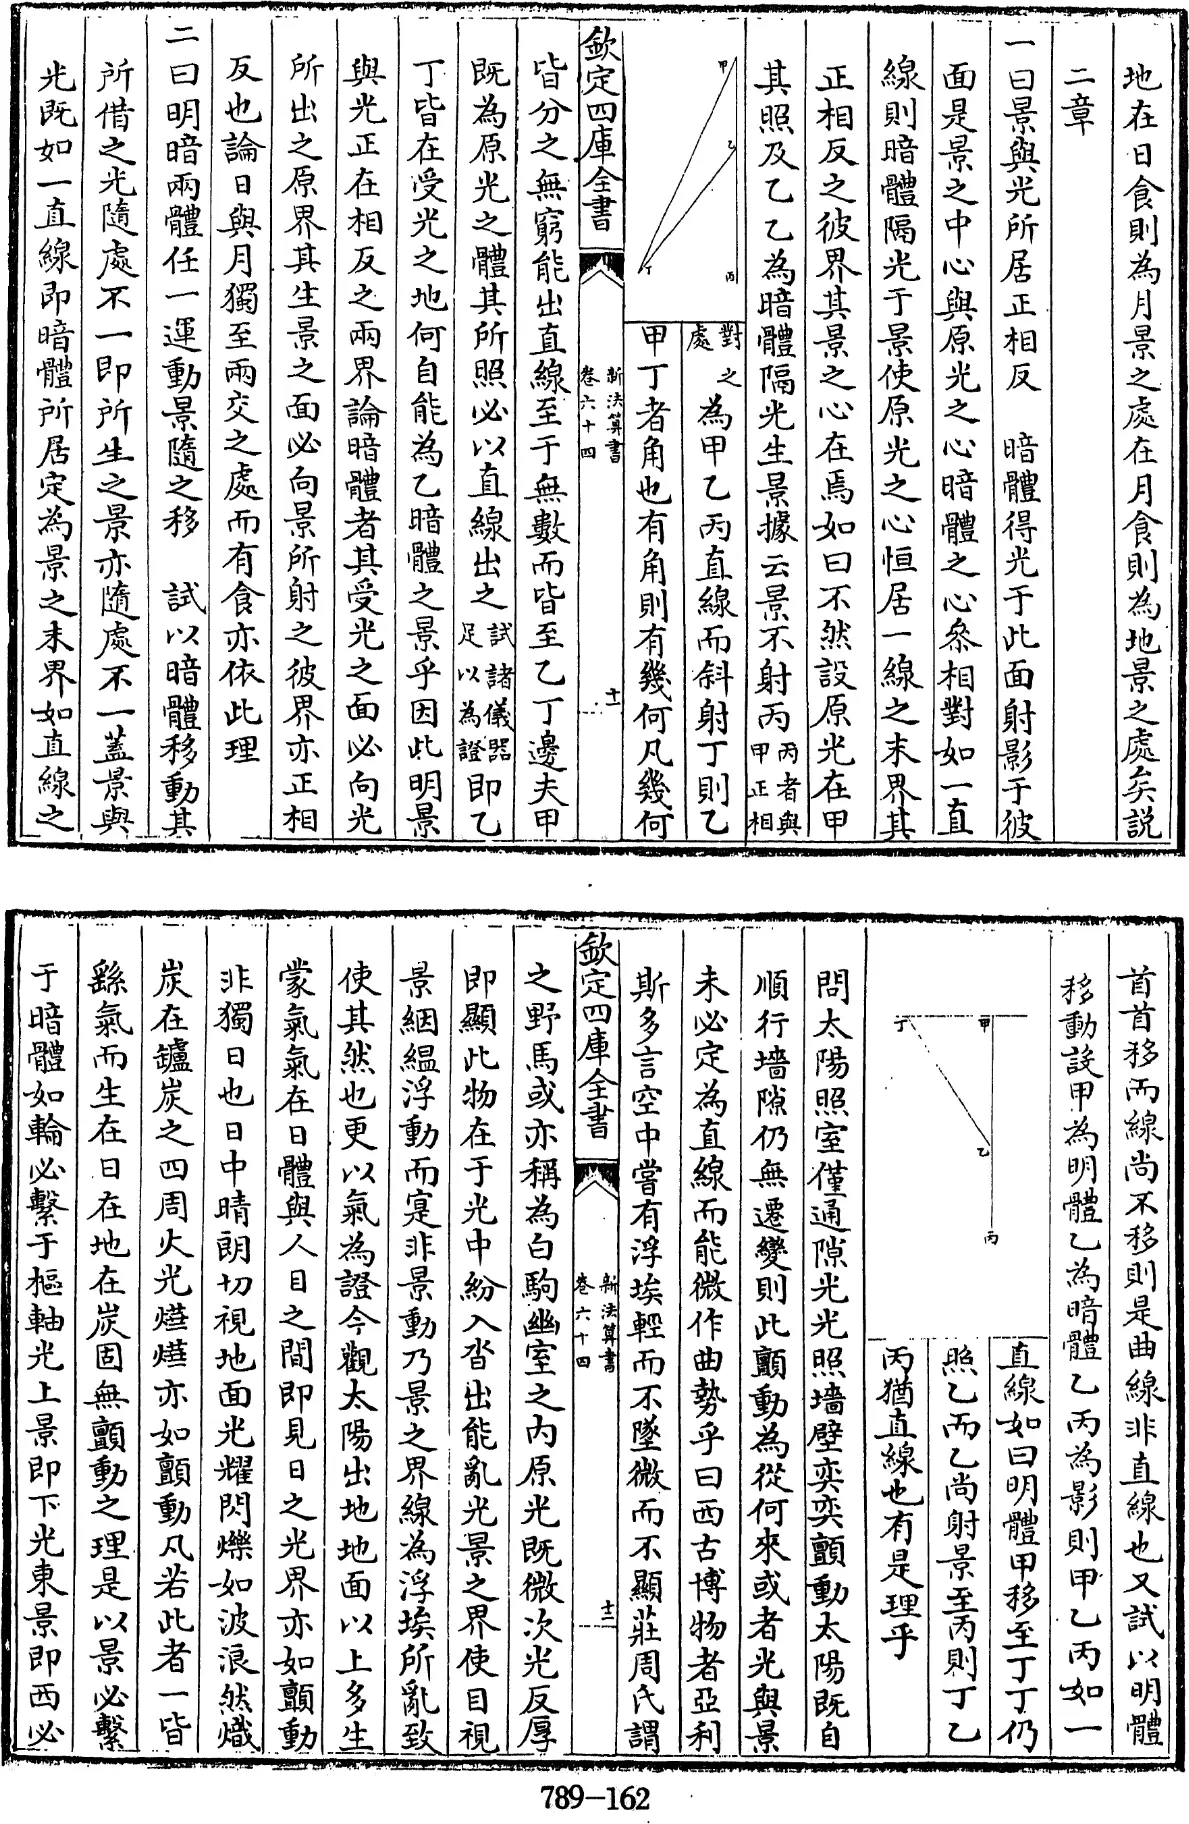 地在日食則為月景之處在月食則為地景之處矣説
二章
一曰景與光所居正相反　暗體得光于此面射影于彼
面是景之中心與原光之心暗體之心叅相對如一直
線則暗體隔光于景使原光之心恒居一線之末界其
正相反之彼界其景之心在焉如曰不然設原光在甲
其照及乙乙為暗體隔光生景據云景不射丙丙者與甲正相
對之處
為甲乙丙直線而斜射丁則乙
甲丁者角也有角則有幾何凡幾何
甲
乙
丙
丁
欽定四庫全書
新法算書
卷六十四
十一
皆分之無窮能出直線至于無數而皆至乙丁邊夫甲
既為原光之體其所照必以直線出之試諸儀器足以為證即乙
丁皆在受光之地何自能為乙暗體之景乎因此明景
與光正在相反之兩界論暗體者其受光之面必向光
所出之原界其生景之面必向景所射之彼界亦正相
反也論日與月獨至兩交之處而有食亦依此理
二曰明暗兩體任一運動景隨之移　試以暗體移動其
所借之光隨處不一即所生之景亦隨處不一葢景與
光既如一直線即暗體所居定為景之末界如直線之
首首移而線尚不移則是曲線非直線也又試以明體
移動設甲為明體乙為暗體乙丙為影則甲乙丙如一
直線如曰明體甲移至丁丁仍
照乙而乙尚射景至丙則丁乙
丙猶直線也有是理乎
甲
乙
丙
丁
問太陽照室僅通隙光光照墻壁奕奕顫動太陽既自
順行墻隙仍無遷變則此顫動為從何來或者光與景
未必定為直線而能微作曲勢乎曰西古博物者亞利
斯多言空中嘗有浮埃輕而不墜微而不顯莊周氏謂
欽定四庫全書
新法算書
卷六十四
十二
之野馬或亦稱為白駒幽室之内原光既微次光反厚
即顯此物在于光中紛入沓出能亂光景之界使目視
景絪緼浮動而寔非景動乃景之界線為浮埃所亂致
使其然也更以氣為證今觀太陽出地地面以上多生
蒙氣氣在日體與人目之間即見日之光界亦如顫動
非獨日也日中晴朗切視地面光耀閃爍如波浪然熾
炭在鑪炭之四周火光㷸㷸亦如顫動凡若此者一皆
繇氣而生在日在地在炭固無顫動之理是以景必繫
于暗體如輪必繫于樞軸光上景即下光東景即西必
789-162